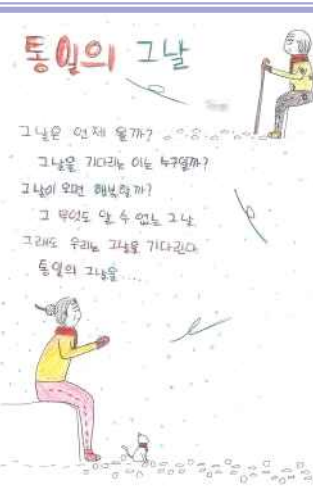 통일의 그날
그날은 언제 올까?
그날을 기다리는 이는 누구일까?
그날이 오면 행복할까?
그 무엇도 알 수 없는 그날
그래도 우리는 그날을 기다린다
통일의 그날을...